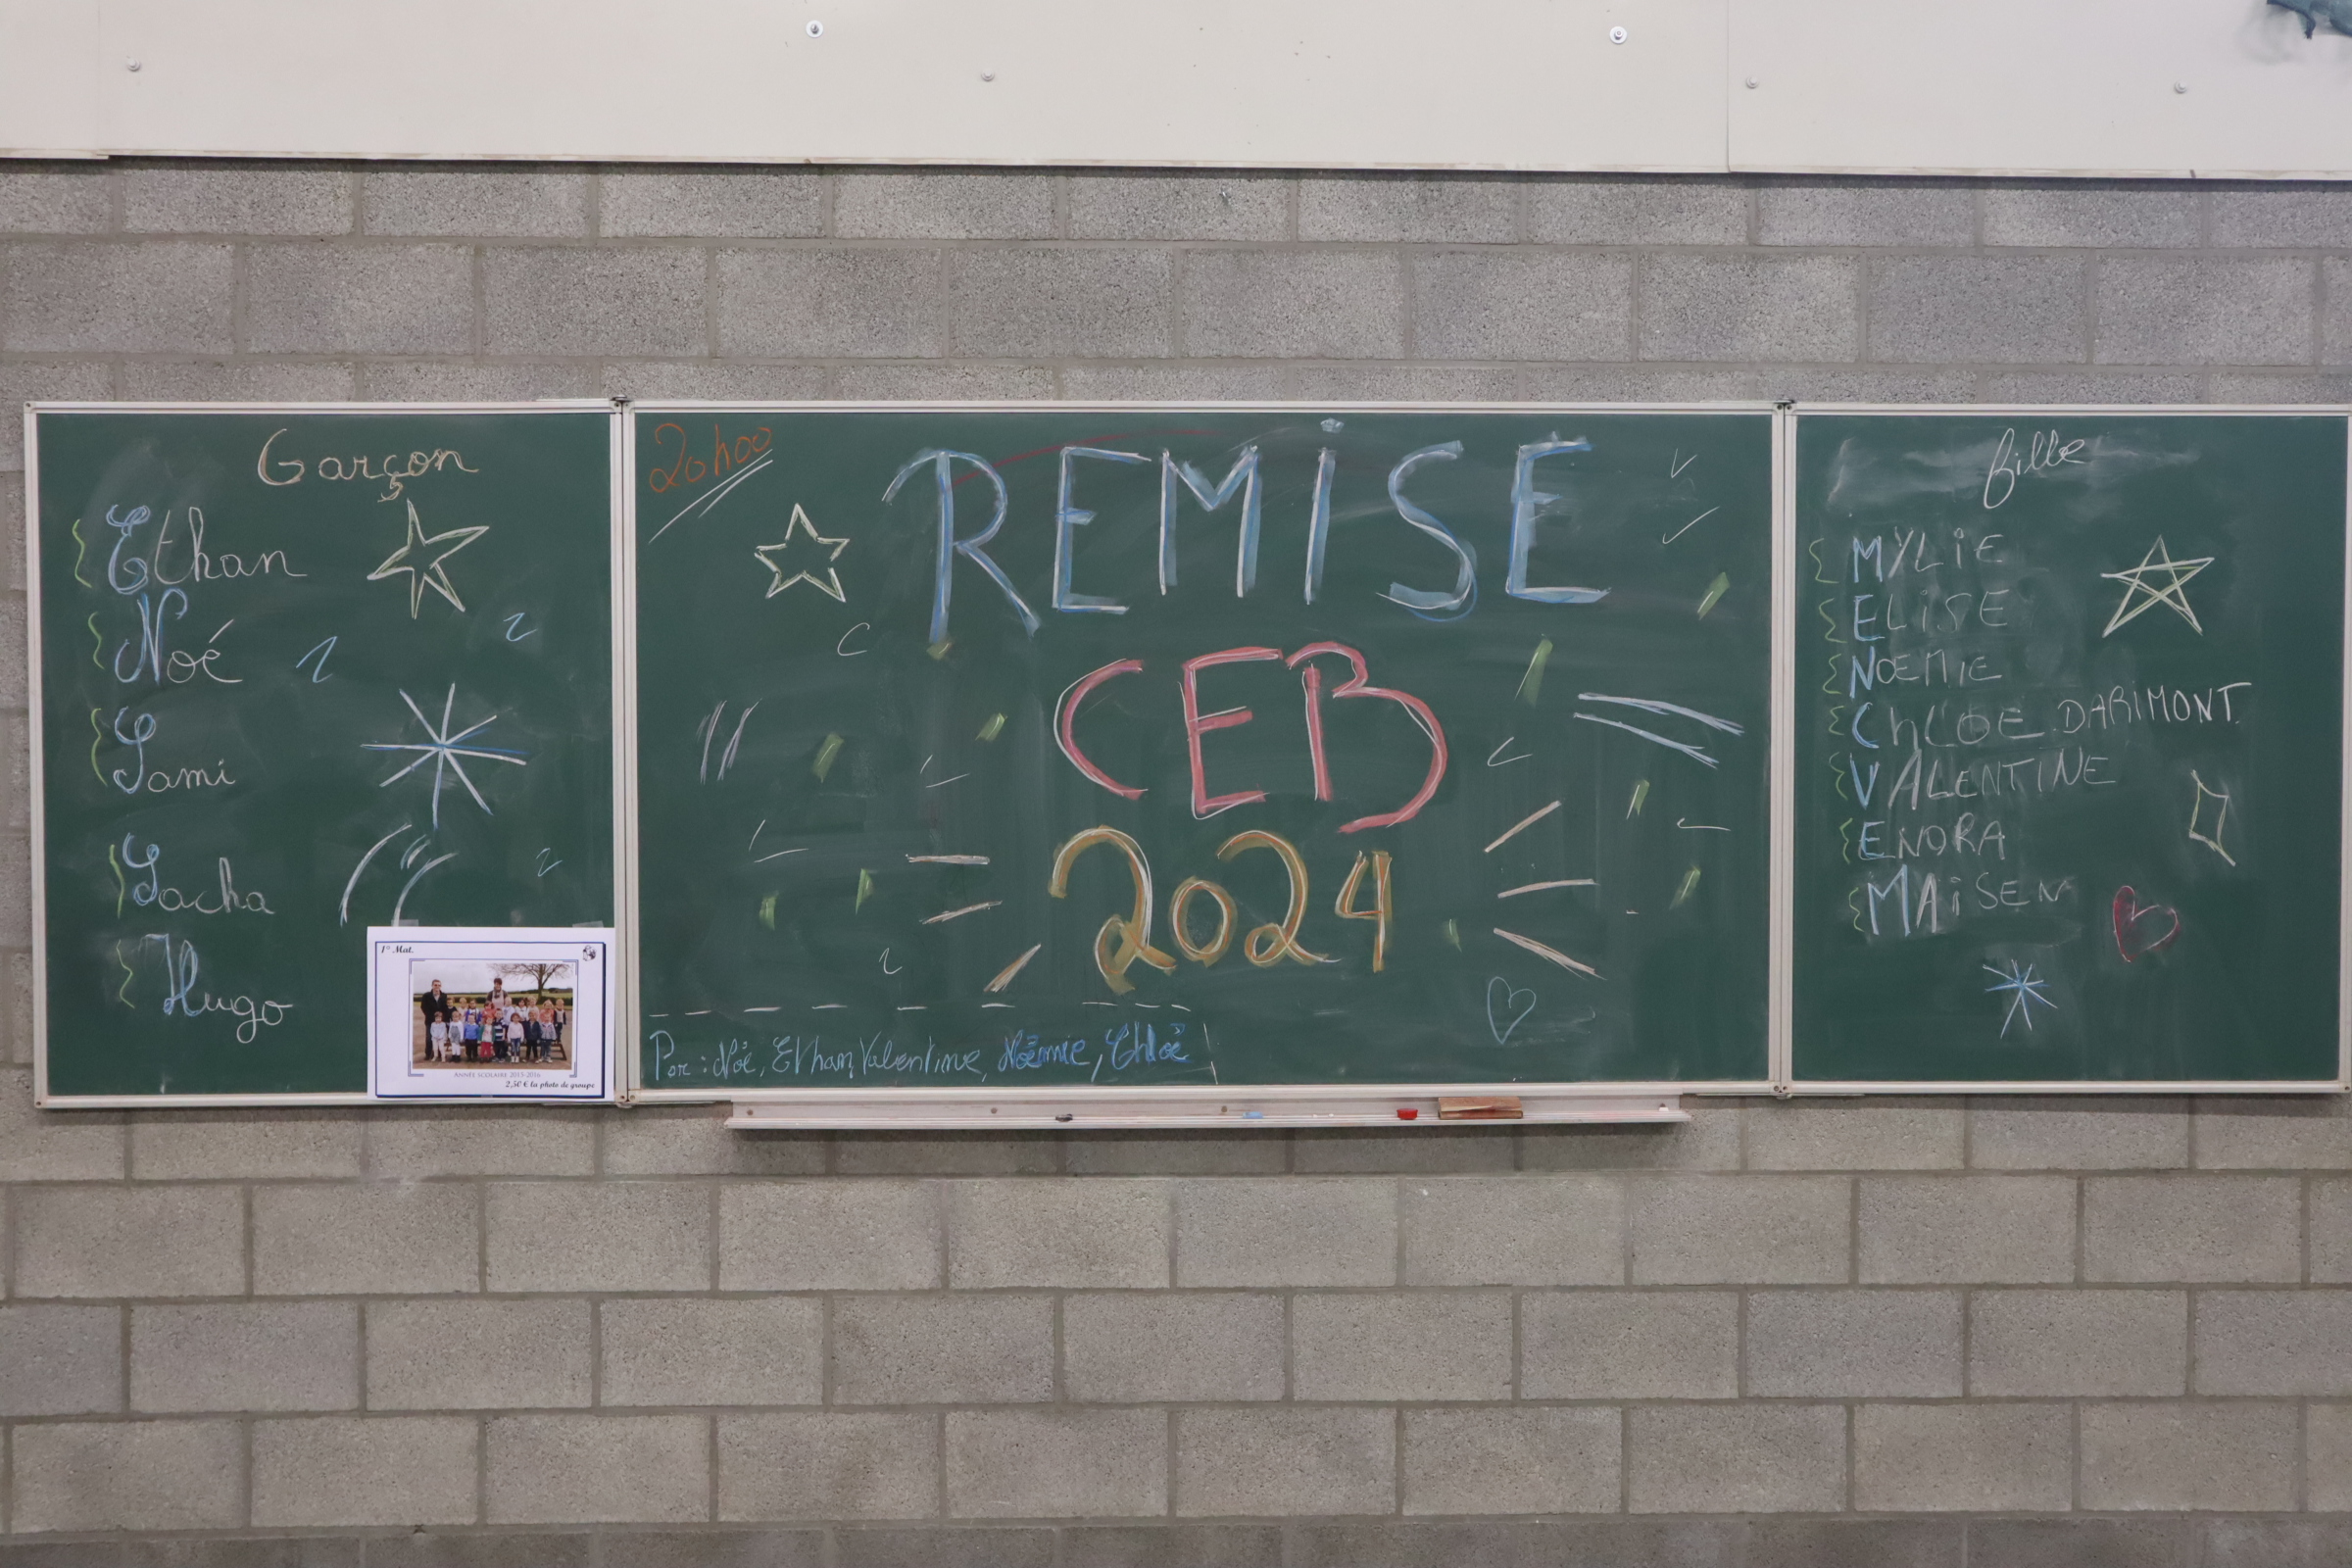 Garçon
Ethan
Noé
Sami
Sacha
Hugo
1° Mat.
ANNÉE SCOLAIRE 2015-2016
2,50 € la photo de groupe
20h00
REMISE
CEB
2024
Par : Noé, Ethan, Valentine, Noëmie, Chloë
fille
MYLiE
ELiSE
NOEMiE
ChLOE DARIMONT.
VALENTINE
ENORA
MAiSEN